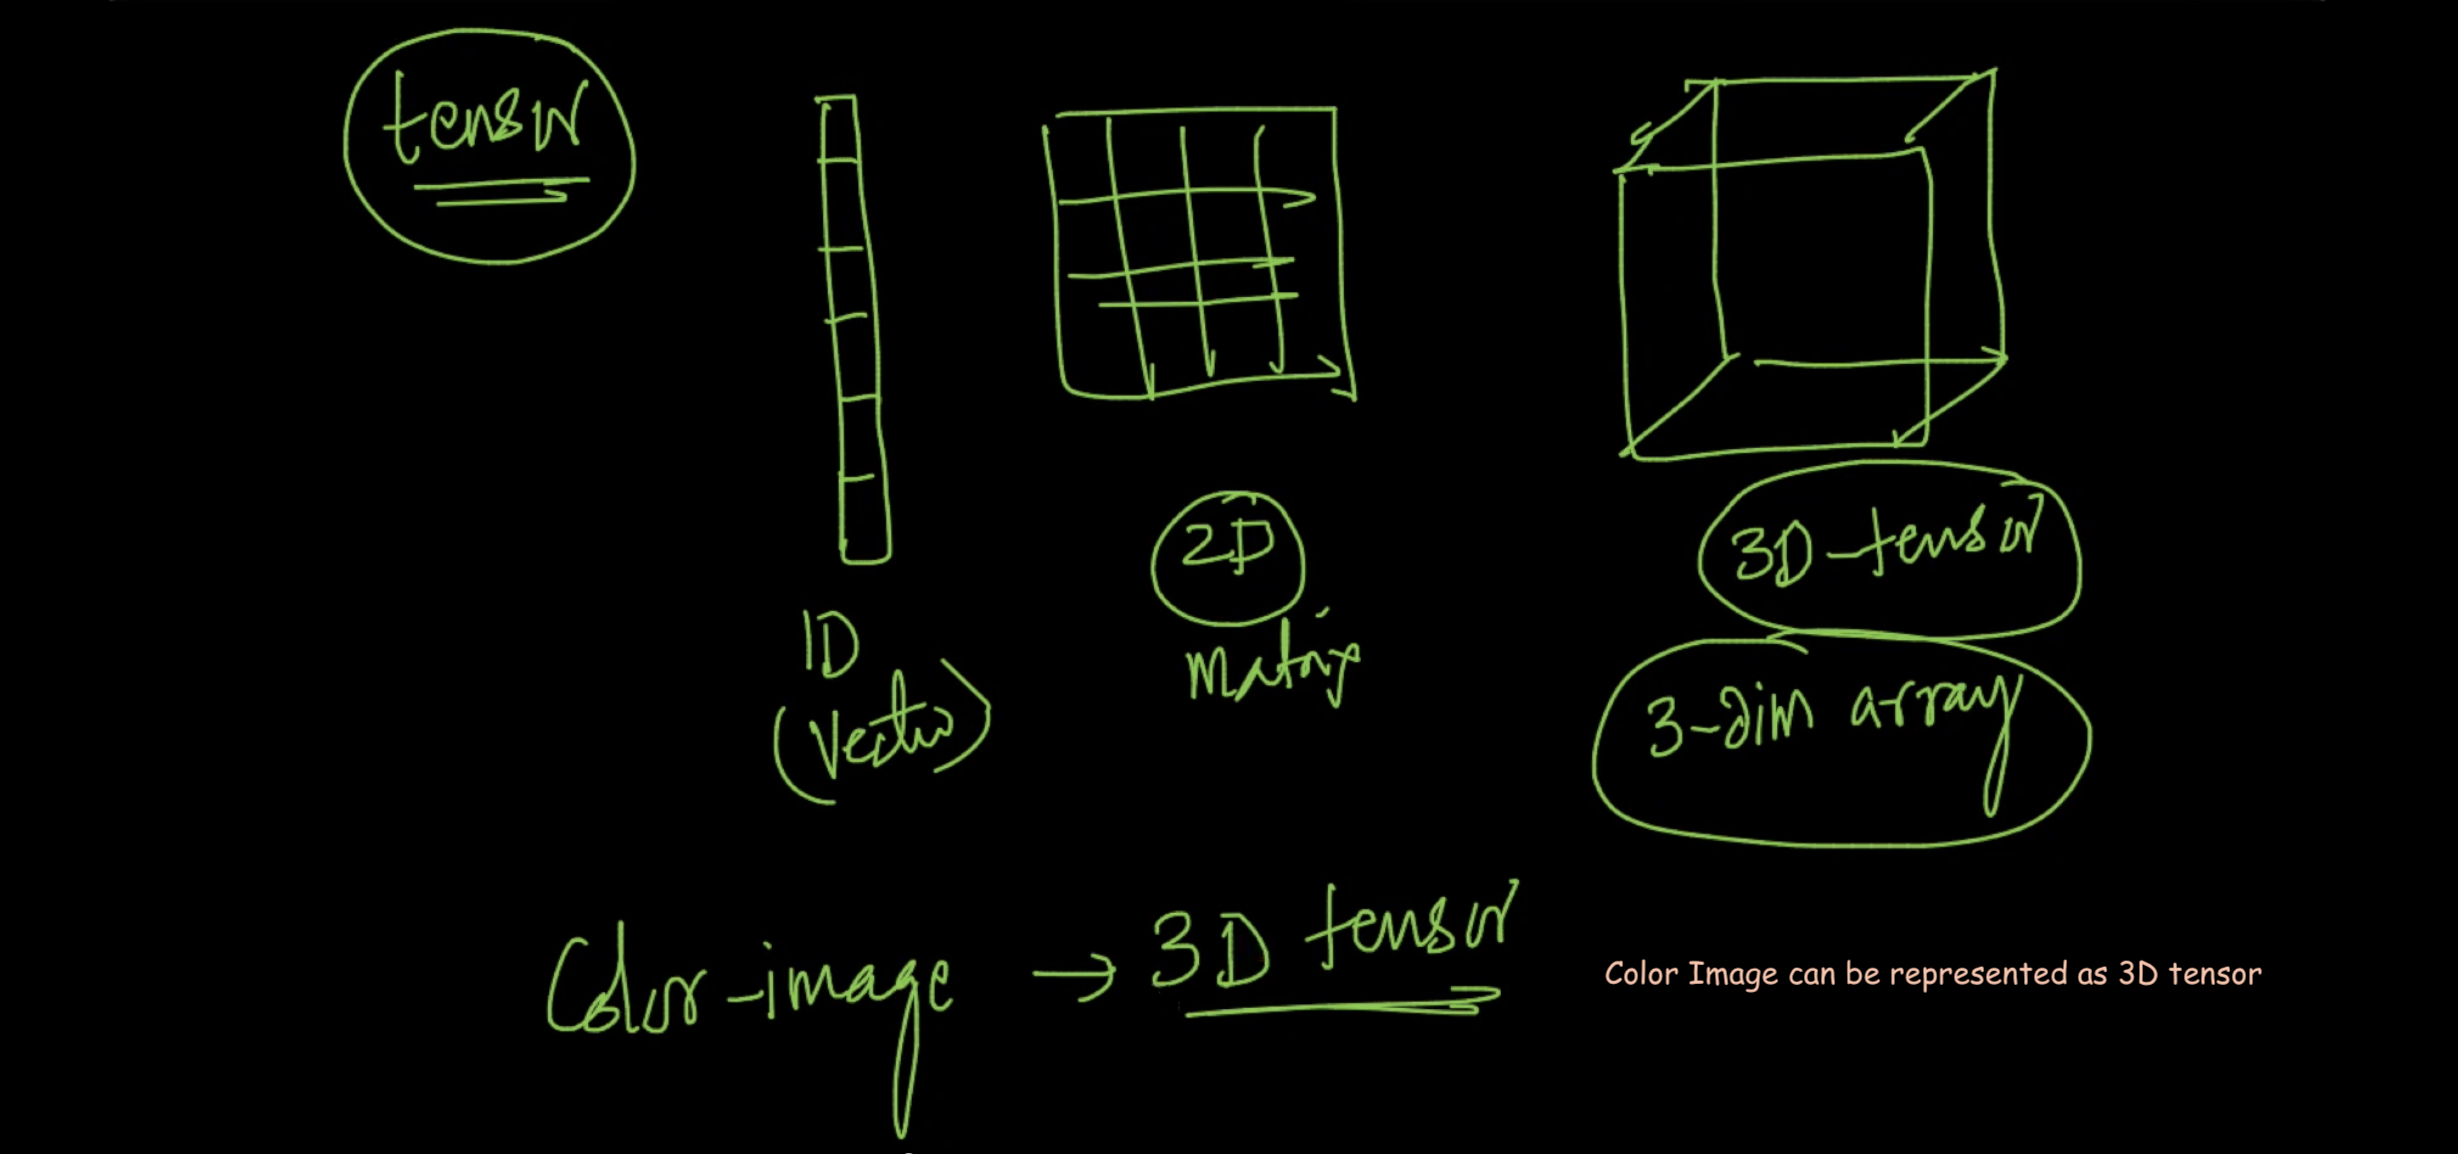 tensor
1D
(Vector)
2D
Matrix
3D-tensor
3-dim array
Color-image → 3D tensor
Color Image can be represented as 3D tensor